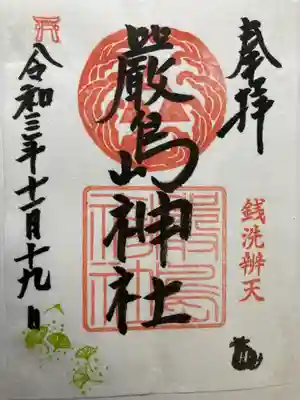 奉拝
銭洗辨天
厳島神社
令和三年十一月十九日